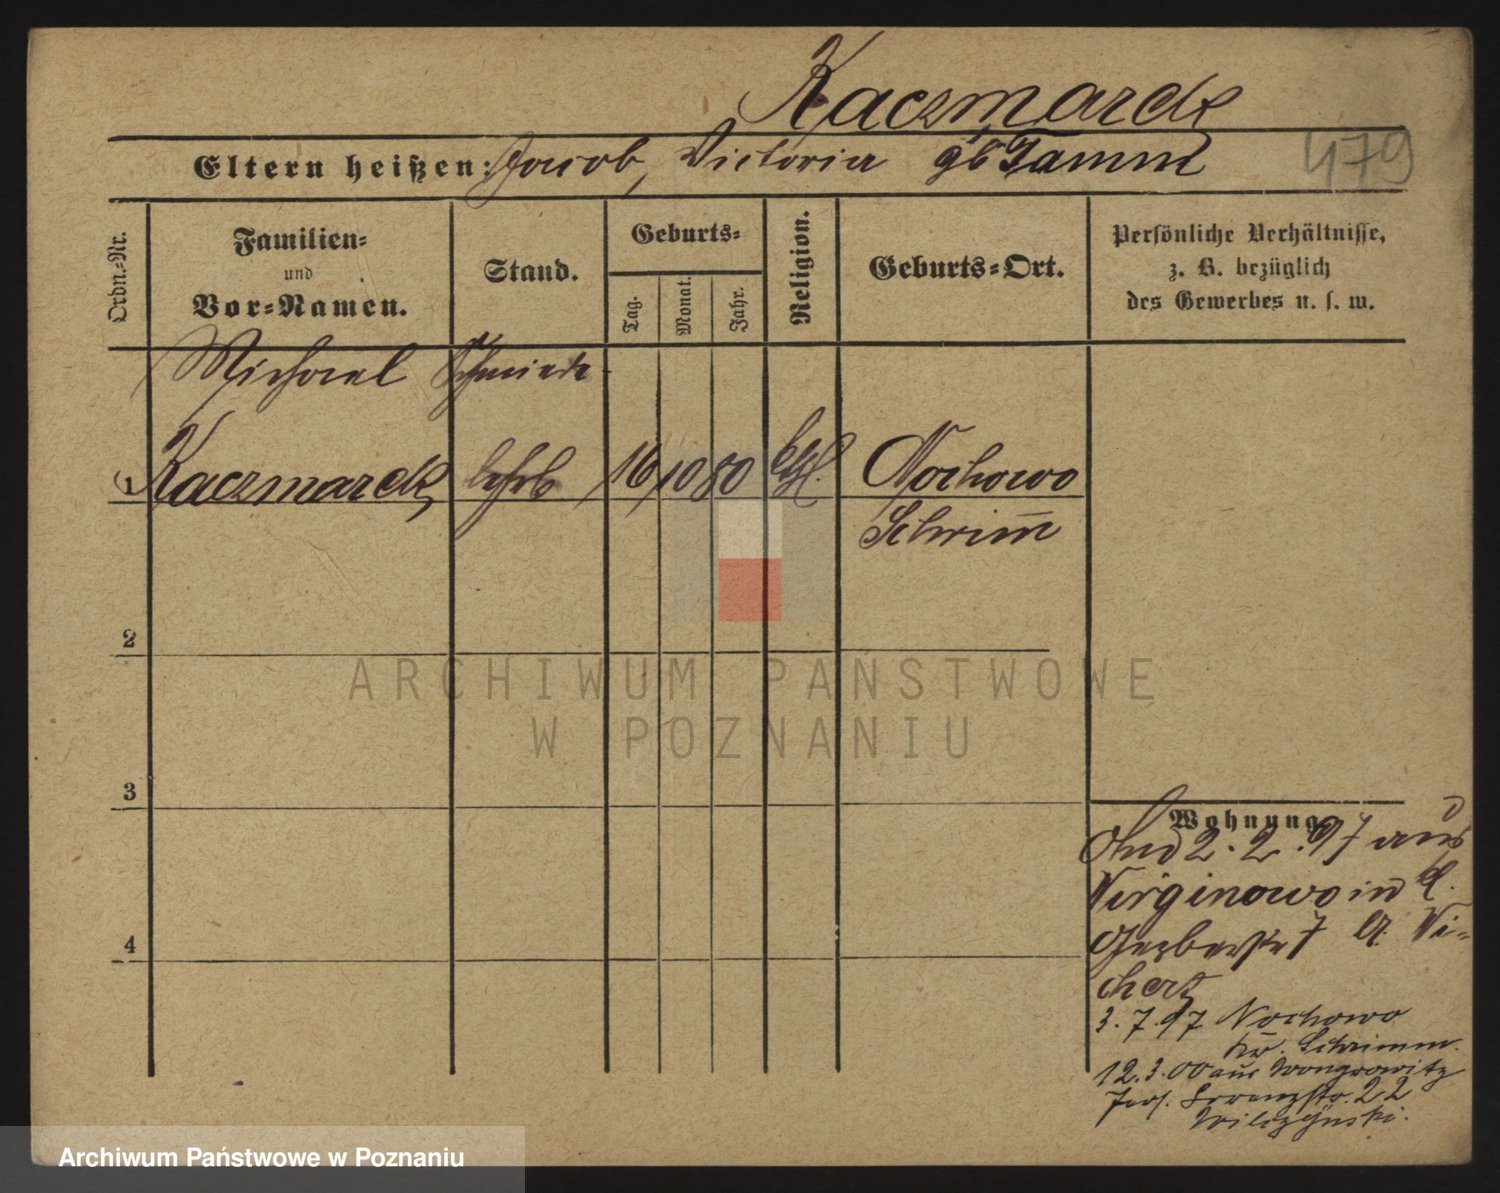 Kaczmarek
Eltern heißen: Jacob, Victoria gb Tamm
479
Ordn.-Nr.
Familien-
und
Vor-Namen.
Stand.
Geburts-
Tag.
Monat.
Jahr.
Religion.
Geburts-Ort.
Persönliche Verhältnisse,
z. B. bezüglich
des Gewerbes u. s. w.
Michael Schmiede-
1 Kaczmarek lehrl 16 10 80 kth. Nochowo
Schrim̄
2
ARCHIWUM PAŃSTWOWE
W POZNANIU
3
Wohnung
2. 2. 97 aus
Werginowo in
Gerberstr 7 b. Wi-
chert
3. 7. 97 Nochowo
Kr. Schrimm.
12. 3. 00 aus Wongrowitz
Jers. 22
Wilczynski.
4
Archiwum Państwowe w Poznaniu